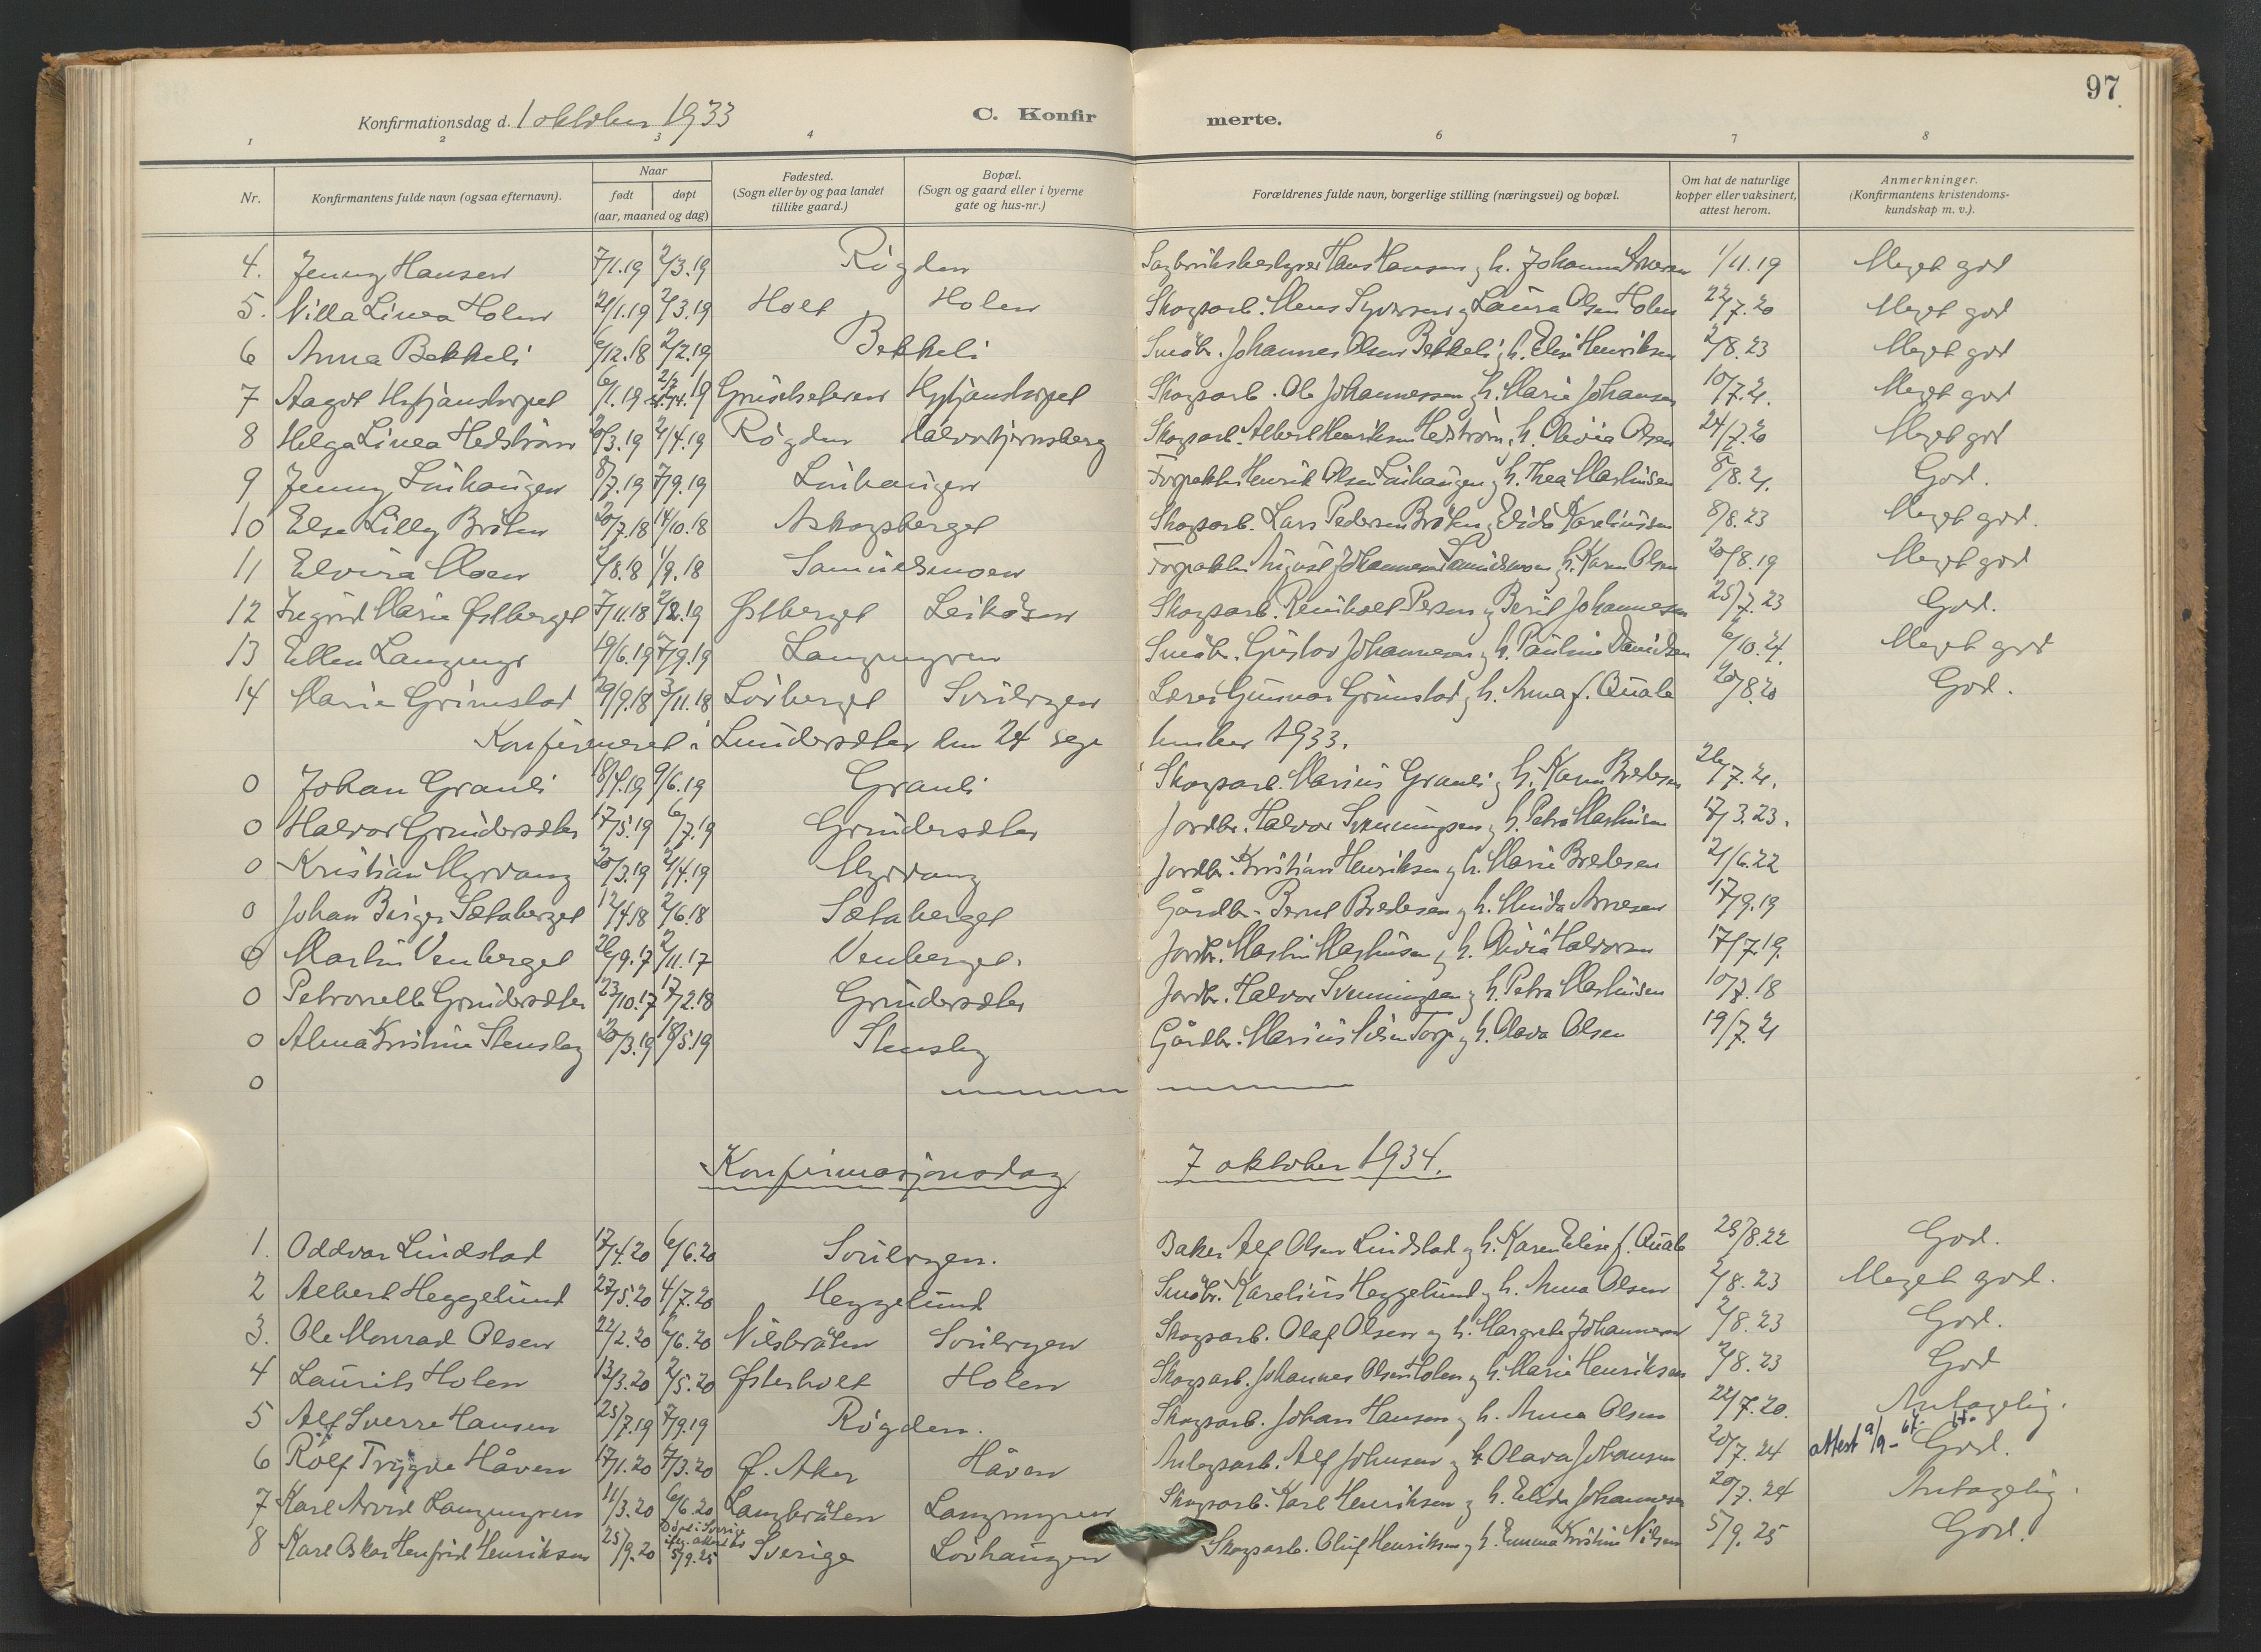 97
Konfirmationsdag d. 1 oktober 1933 C. Konfirmerte.
1 2 3 4 6 7 8
Nr. Konfirmantens fulde navn (ogsaa efternavn). Naar født døpt (aar, maaned og dag) Fødested. (Sogn eller by og paa landet tillike gaard.) Bopæl. (Sogn og gaard eller i byerne gate og hus-nr.) Forældrenes fulde navn, borgerlige stilling (næringsvei) og bopæl. Om hat de naturlige kopper eller vaksinert, attest herom. Anmerkninger. (Konfirmantens kristendoms-kundskap m. v.).
4. Jenny Hansen 7/1.19 2/3.19 Rögden Hans Hansen og h. Johanne 1/11.19 Meget god
5. Villa Linea Holen 21/1.19 2/3.19 Holt Holen Skogsarb. Mons Syversen og Laura Olsen Holen 22/7.20 Meget god
6 Anna Bekkeli 6/12.18 2/2.19 Bekkeli Småbr. Johannes Olsen Bekkeli og h. Elise Henriksen 2/8.23 Meget god
7 Aagot Hytjanstorpet 6/1.19 Gruisetseteren Hytjanstorpet Skogsarb. Ole Johannessen og h. Marie Johansen 10/7.21. Meget god
8 Helga Linea Hedström 20/3.19 21/4.19 Rögden Halvortjernsberg Skogsarb. Albert Henriksen Hedström og h. Olivia Olsen 24/7.20 Meget god
9 Jenny Linhaugen 8/7.19 7/9.19 Linhaugen Forpakter Henrik Olsen Linhaugen og h. Thea Martinsen 8/8.21. God.
10 Else Lilly Bråten 20/7.18 14/10.18 Askogsberget Skogsarb. Lars Pedersen Bråten og Elida Karelinssen 8/8.23 Meget god.
11 Elvira Moen 2/8.18 1/9.18 Samuelsmoen Forpakter August Johannesen Samuelsmoen og h. Karen Olsen 20/8.19 Meget god
12 Ingrid Marie Østberget 7/11.18 2/2.19 Østberget Leiråsen Skogsarb. Reinholt Persen og Berit Johannesen 25/7.23 God.
13 Ellen Langmyr 19/6.19 7/9.19 Langmyren Småbr. Gustav Johannesen og h. Pauline Danielsen 6/10.21. Meget god
14 Marie Grimstad 29/9.18 3/11.18 Lövberget Svullryen Lærer Gunnar Grimstad og h. Anna f. Quale 20/8.20 God.
Konfirmeret i Lundersæter den 24 september 1933.
0 Johan Granli 18/4.19 9/6.19 Granli Skogsarb. Marius Granli og h. Karen Bredesen 26/7.21.
0 Halvor Grundersæter 17/5.19 6/7.19 Grundersæter Jordbr. Halvor Svenningsen og h. Petra Martinsen 17/3.23.
0 Kristian Myrvang 20/3.19 21/4.19 Myrvang Jordbr. Kristian Henriksen og h. Marie Bredesen 21/6.22
0 Johan Birger Sætaberget 12/4.18 2/6.18 Sætaberget Gårdbr. Bernt Bredesen og h. Minda Arnesen 17/9.19
0 Martin Venberget 26/9.17 2/11.17 Venberget. Jordbr. Martin Martinsen og h. Olivia Halvorsen 17/7.19.
0 Petronelle Grundersæter 23/10.17 17/2.18 Grundersæter Jordbr. Halvor Svenningsen og h. Petra Martinsen 10/7.18
0 Alma Kristine Stensby 20/3.19 18/5.19 Stensby Gårdbr. Marius Nilsen Torp og h. Olava Olsen 19/7.21
0
Konfirmasjonsdag 7 oktober 1934.
1. Oddvar Lindstad 17/4.20 6/6.20 Svullryen. Baker Alf Olsen Lindstad og h. Karen Elise f. Quale 23/8.22 God.
2 Albert Heggelund 27/5.20 4/7.20 Heggelund Småbr. Karelius Heggelund og h. Anna Olsen 2/8.23 Meget god.
3. Ole Monrad Olsen 22/2.20 6/6.20 Nilsbråten Svullryen Skogsarb. Olaf Olsen og h. Margrete Johannesen 2/8.23 God.
4 Laurits Holen 13/3.20 2/5.20 Østerholt Holen Skogsarb. Johannes Olsen Holen og h. Marie Henriksen 2/8.23 God
5 Alf Sverre Hansen 25/7.19 7/9.19 Rögden. Skogsarb. Johan Hansen og h. Anna Olsen 22/7.20. Antagelig.
6 Rolf Trygve Håven 17/1.20 7/3.20 Ø. Aker Håven Anlegsarb. Alf Johnsen og h. Olava Johansen 20/7.24 attest 9/9-64. God.
7 Karl Arvid Langmyren 11/3.20 6/6.20 Langbråten Langmyren Skogsarb. Karl Henriksen og h. Elida Johannesen 20/7.24 Antagelig.
8 Karl Oskar Henfrid Henriksen 25/9.20 Döpt i Sverige iflg. attest 5/9.25 Sverige Lövhaugen Skogsarb. Oluf Henriksen og h. Emma Kristine Nilsen 5/9.25 God.